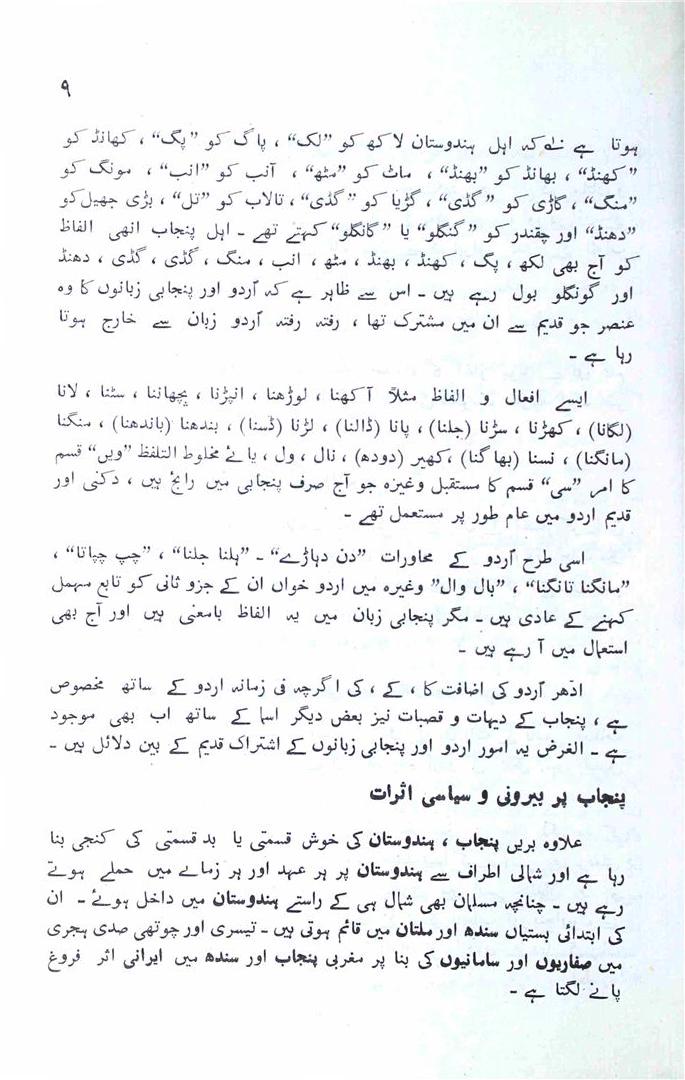 ۹
ہوتا ہے کہ اہل ہندوستان لاکھ کو ”لک“ ، پاگ کو ”پگ“ ، کھانڈ کو
”کھنڈ“ ، بھانڈ کو ”بھنڈ“ ، ماٹ کو ”مٹھ“ ، آنب کو ”انب“ ، مونگ کو
”منگ“ ، گاڑی کو ”گڈی“ ، گڑیا کو ”گڈی“ ، تالاب کو ”تل“ ، بڑی جھیل کو
”دھنڈ“ اور چقندر کو ”گنگلو“ یا ”گانگلو“ کہتے تھے ۔ اہل پنجاب انھی الفاظ
کو آج بھی لکھ ، پگ ، کھنڈ ، بھنڈ ، مٹھ ، انب ، منگ ، گڈی ، گڈی ، دھنڈ
اور گونگلو بول رہے ہیں ۔ اس سے ظاہر ہے کہ اردو اور پنجابی زبانوں کا وہ
عنصر جو قدیم سے ان میں مشترک تھا ، رفتہ رفتہ اردو زبان سے خارج ہوتا
رہا ہے ۔
ایسے افعال و الفاظ مثلاً آکھنا ، لوڑھنا ، انپڑنا ، پچھاننا ، سٹنا ، لانا
(لگانا) ، کھڑنا ، سڑنا (جلنا) ، پانا (ڈالنا) ، لڑنا (ڈسنا) ، بندھنا (باندھنا) ، منگنا
(مانگنا) ، نسنا (بھاگنا) ، کھیر (دودھ) ، نال ، ول ، یائے مخلوط التلفظ ”ویں“ قسم
کا امر ”سی“ قسم کا مستقبل وغیرہ جو آج صرف پنجابی میں رائج ہیں ، دکنی اور
قدیم اردو میں عام طور پر مستعمل تھے ۔
اسی طرح اردو کے محاورات ”دن دہاڑے“ ۔ ”ہلنا جلنا“ ، ”چپ چپاتا“ ،
”مانگنا تانگنا“ ، ”بال وال“ وغیرہ میں اردو خواں ان کے جزو ثانی کو تابع مہمل
کہنے کے عادی ہیں ۔ مگر پنجابی زبان میں یہ الفاظ بامعنی ہیں اور آج بھی
استعمال میں آ رہے ہیں ۔
ادھر اردو کی اضافت کا ، کے ، کی اگرچہ فی زمانہ اردو کے ساتھ مخصوص
ہے ، پنجاب کے دیہات و قصبات نیز بعض دیگر اسما کے ساتھ اب بھی موجود
ہے ۔ الغرض یہ امور اردو اور پنجابی زبانوں کے اشتراک قدیم کے بین دلائل ہیں ۔
پنجاب پر بیرونی و سیاسی اثرات
علاوہ بریں پنجاب ، ہندوستان کی خوش قسمتی یا بد قسمتی کی کنجی بنا
رہا ہے اور شمالی اطراف سے ہندوستان پر ہر عہد اور ہر زمانے میں حملے ہوتے
رہے ہیں ۔ چنانچہ مسلمان بھی شمال ہی کے راستے ہندوستان میں داخل ہوئے ۔ ان
کی ابتدائی بستیاں سندھ اور ملتان میں قائم ہوتی ہیں ۔ تیسری اور چوتھی صدی ہجری
میں صفاریوں اور سامانیوں کی بنا پر مغربی پنجاب اور سندھ میں ایرانی اثر فروغ
پانے لگتا ہے ۔